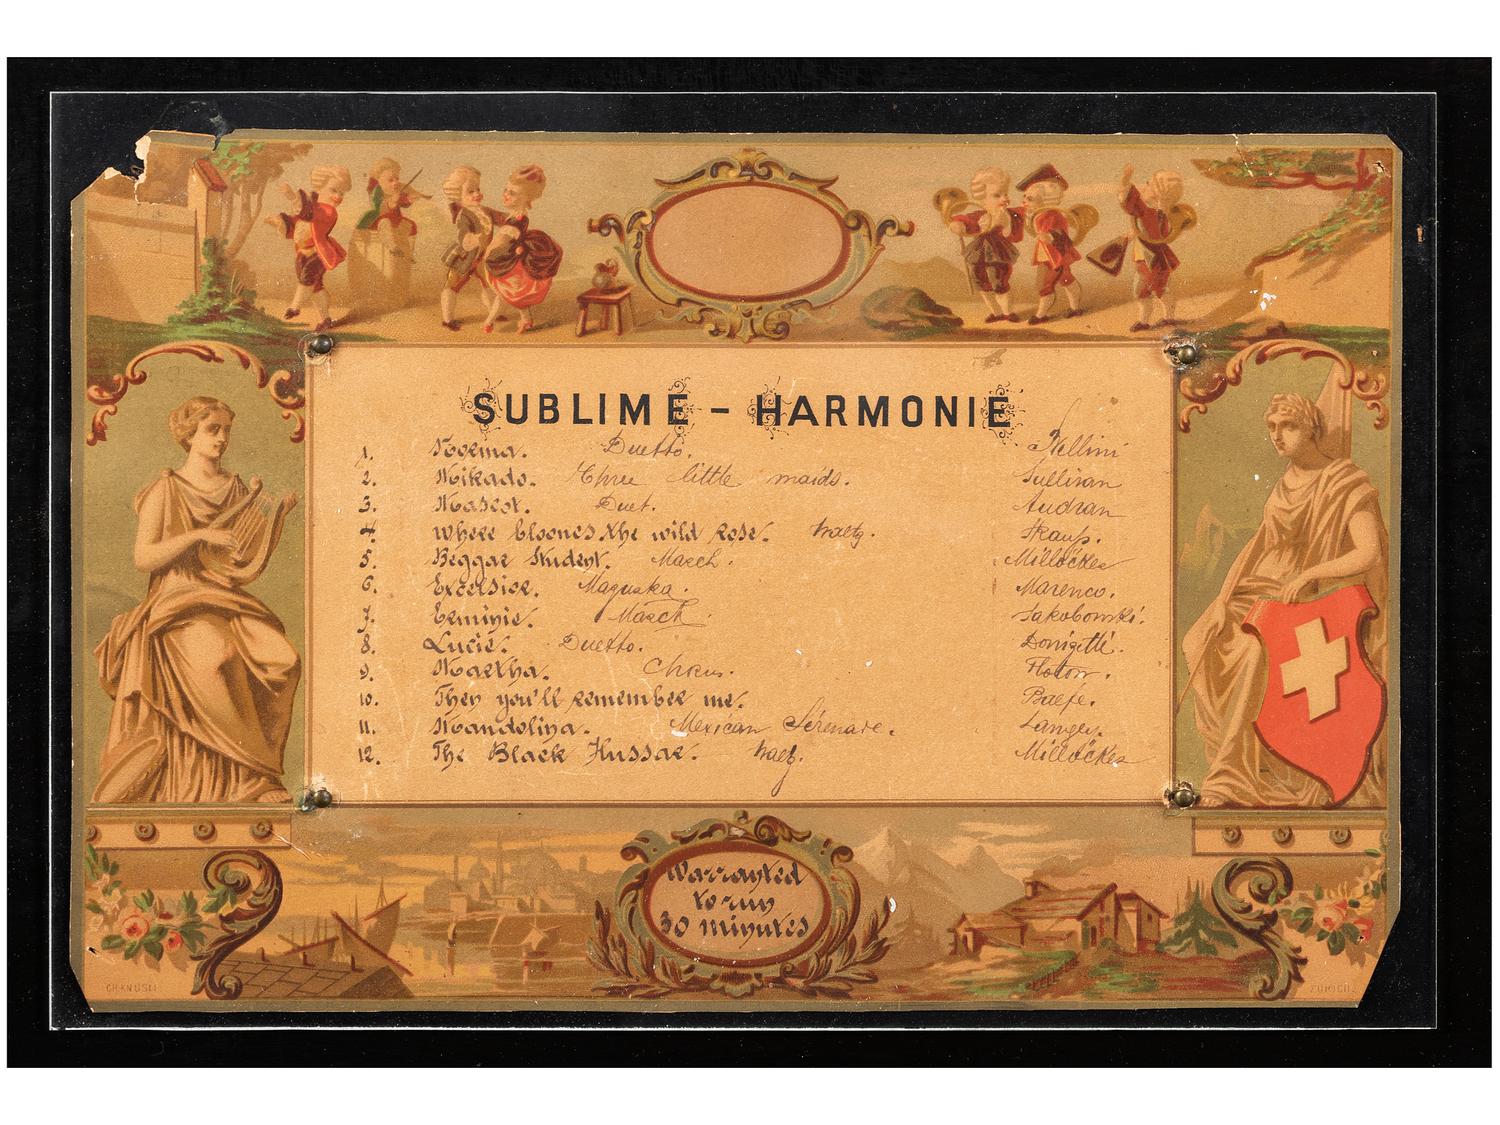 SUBLIME – HARMONIE
1. Norma. Duetto. Bellini
2. Mikado. Three little maids. Sullivan
3. Mascot. Duet. Audran
4. Where bloones the wild rose. Waltz. Strauß.
5. Beggar Student. March. Millöcker
6. Excelsior. Mazurka. Marenco.
7. Erminie. March. Jakobowski.
8. Lucie. Duetto. Donizetti.
9. Martha. Chœur. Flotow.
10. Then you'll remember me. Balfe.
11. Mandolina. Mexican Sérénade. Langey.
12. The Black Hussar. Waltz. Millöcker
Warranted
to run
30 minutes
CH. KNÜSLI ZÜRICH.